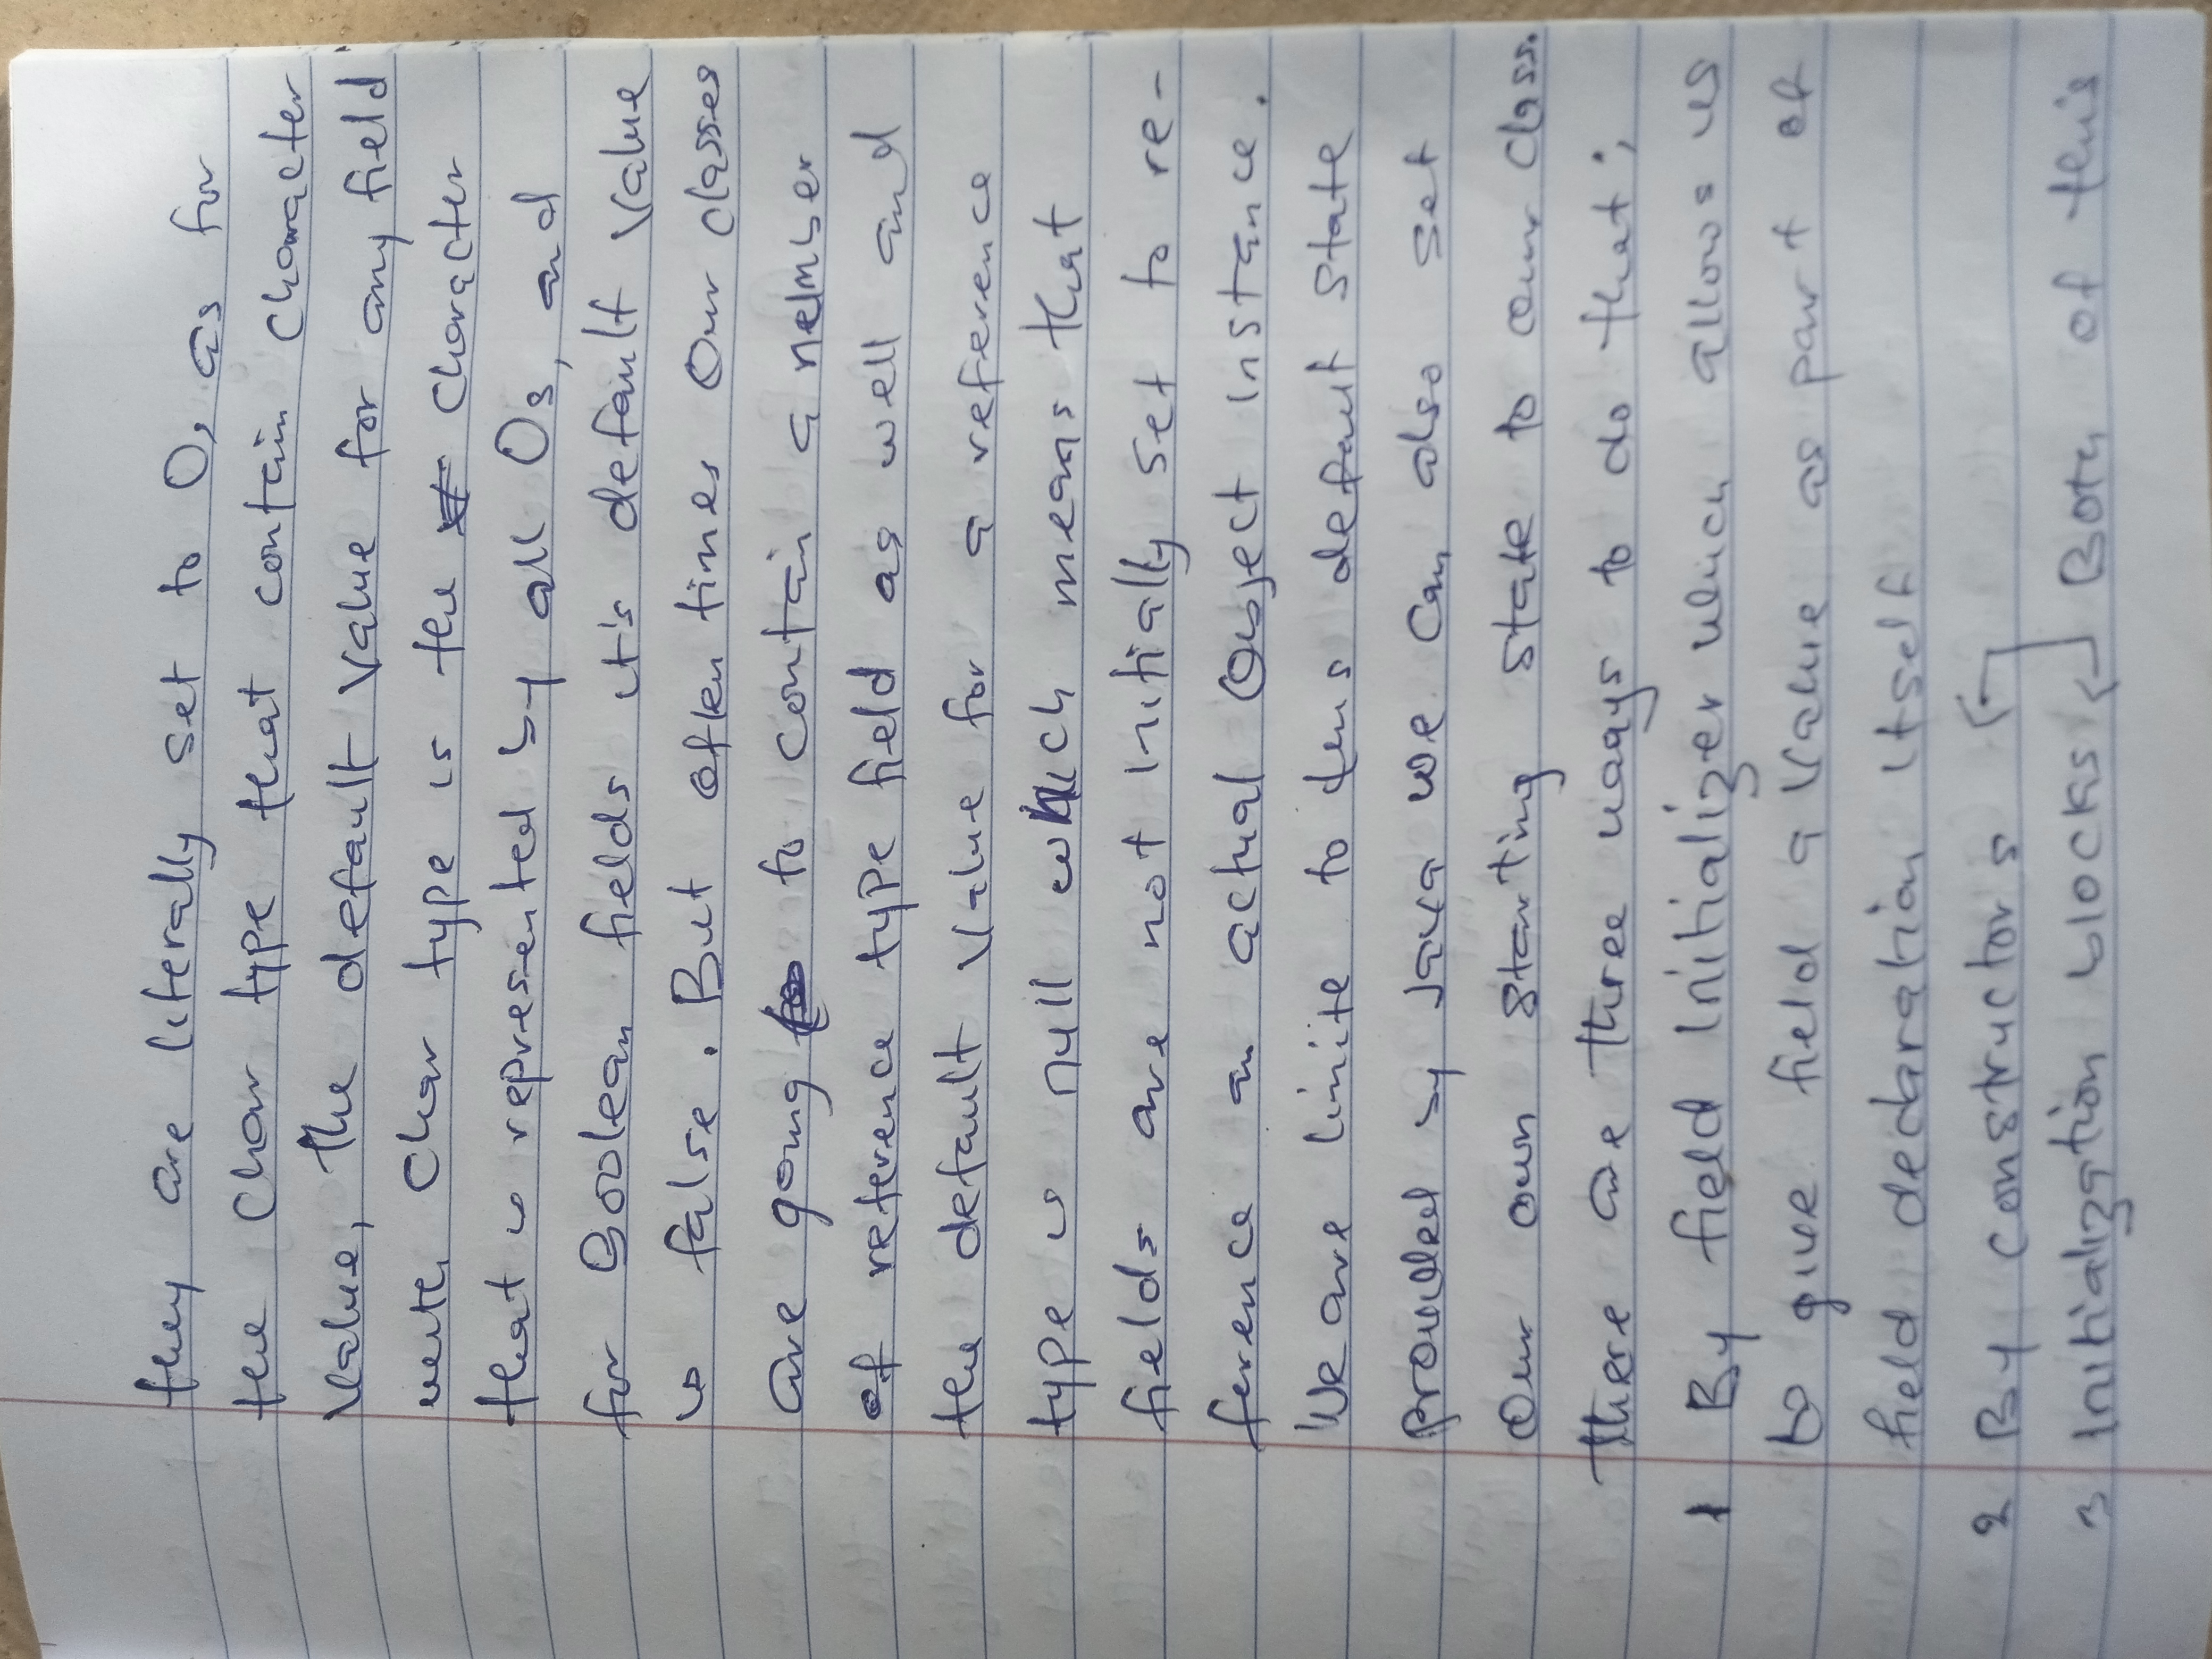 they are literally set to 0, as for
the char type that contain character
value, the default value for any field
with char type is the character
that is represented by all 0s, and
for Boolean fields it's default value
is false. But often times our classes
are going to contain a nelmber
of reference type field as well and
the default value for a reference
type is null which means that
fields are not initially set to re-
ference an actual Object instance.
We are limite to this default state
provided by Java we can also set
our own starting state to our class.
there are three ways to do that;
1 By field initializer which allows us
to give field a value as part of
field declaration itself
2 By constructors
3 initialization blocks Both of this